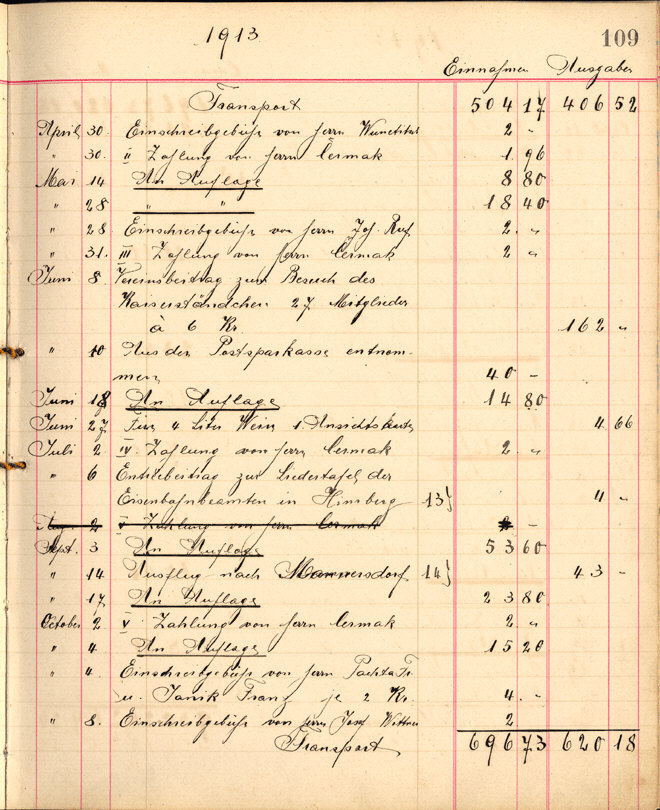 1913. 109
Einnahmen Ausgaben
Transport 504 17 406 52
April 30. Einschreibgebühr von Herrn 2 -
" 30. II Zahlung von Herrn Cermak 1. 96
Mai 14 An Auflage 8 80
" 28 " " 18 40
" 28 Einschreibgebühr von Herrn Joh. Ruf 2. "
" 31. III Zahlung von Herrn Cermak 2 "
Juni 8. Vereinsbeitrag zum Besuch des
Kaiserständchen 27 Mitglieder
à 6 Kr. 162 "
" 10 Aus der Postsparkasse entnom-
men 40 -
Juni 18 An Auflage 14 80
Juni 27 Für 4 Liter Wein 1 Ansichtskarte 4 66
Juli 2 IV. Zahlung von Herrn Cermak 2 "
" 6 Entréebeitrag zur Liedertafel der
Eisenbahnbeamten in Himberg 13} 4 "
Aug. 2 V Zahlung von Herrn Cermak 2 -
Sept. 3 An Auflage 53 60
" 14 Ausflug nach Mannersdorf 14} 43 -
" 17 An Auflage 23 80
October 2 V Zahlung von Herrn Cermak 2 "
" 4 An Auflage 15 20
" 4. Einschreibgebühr von Herrn Pachta Fr.
u. Janik Franz je 2 Kr. 4. -
" 8. Einschreibgebühr von Herrn Josef 2
Transport 696 73 620 18